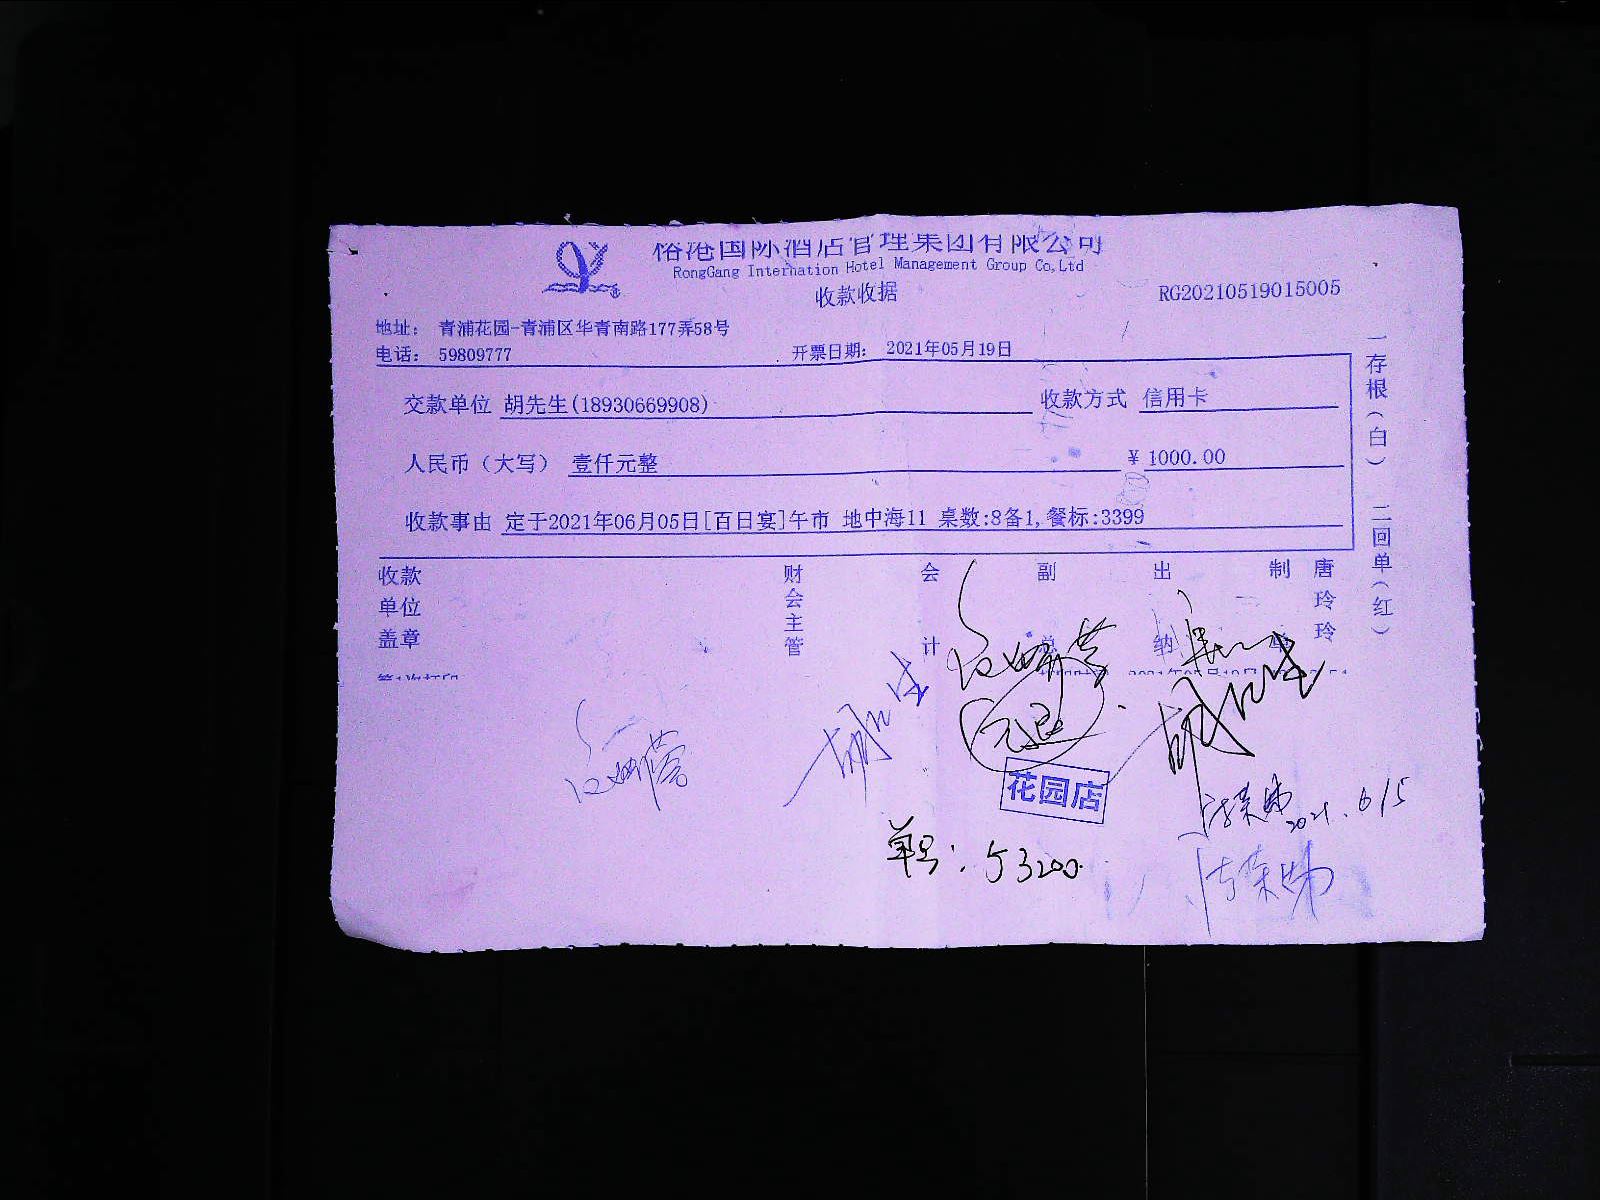 裕港国际酒店管理集团有限公司
RongGang Internation Hotel Management Group Co,Ltd
收款收据
RG20210519015005
地址： 青浦花园-青浦区华青南路177弄58号
电话： 59809777
开票日期： 2021年05月19日
交款单位 胡先生(18930669908) 收款方式 信用卡
人民币（大写） 壹仟元整 ¥ 1000.00
收款事由 定于2021年06月05日[百日宴]午市 地中海11 桌数:8备1,餐标:3399
一存根（白） 二回单（红）
收款单位盖章 财会主管 会计 副总 出纳 制单 唐玲玲
第1次打印
花园店
单号: 53200
2021.6/5